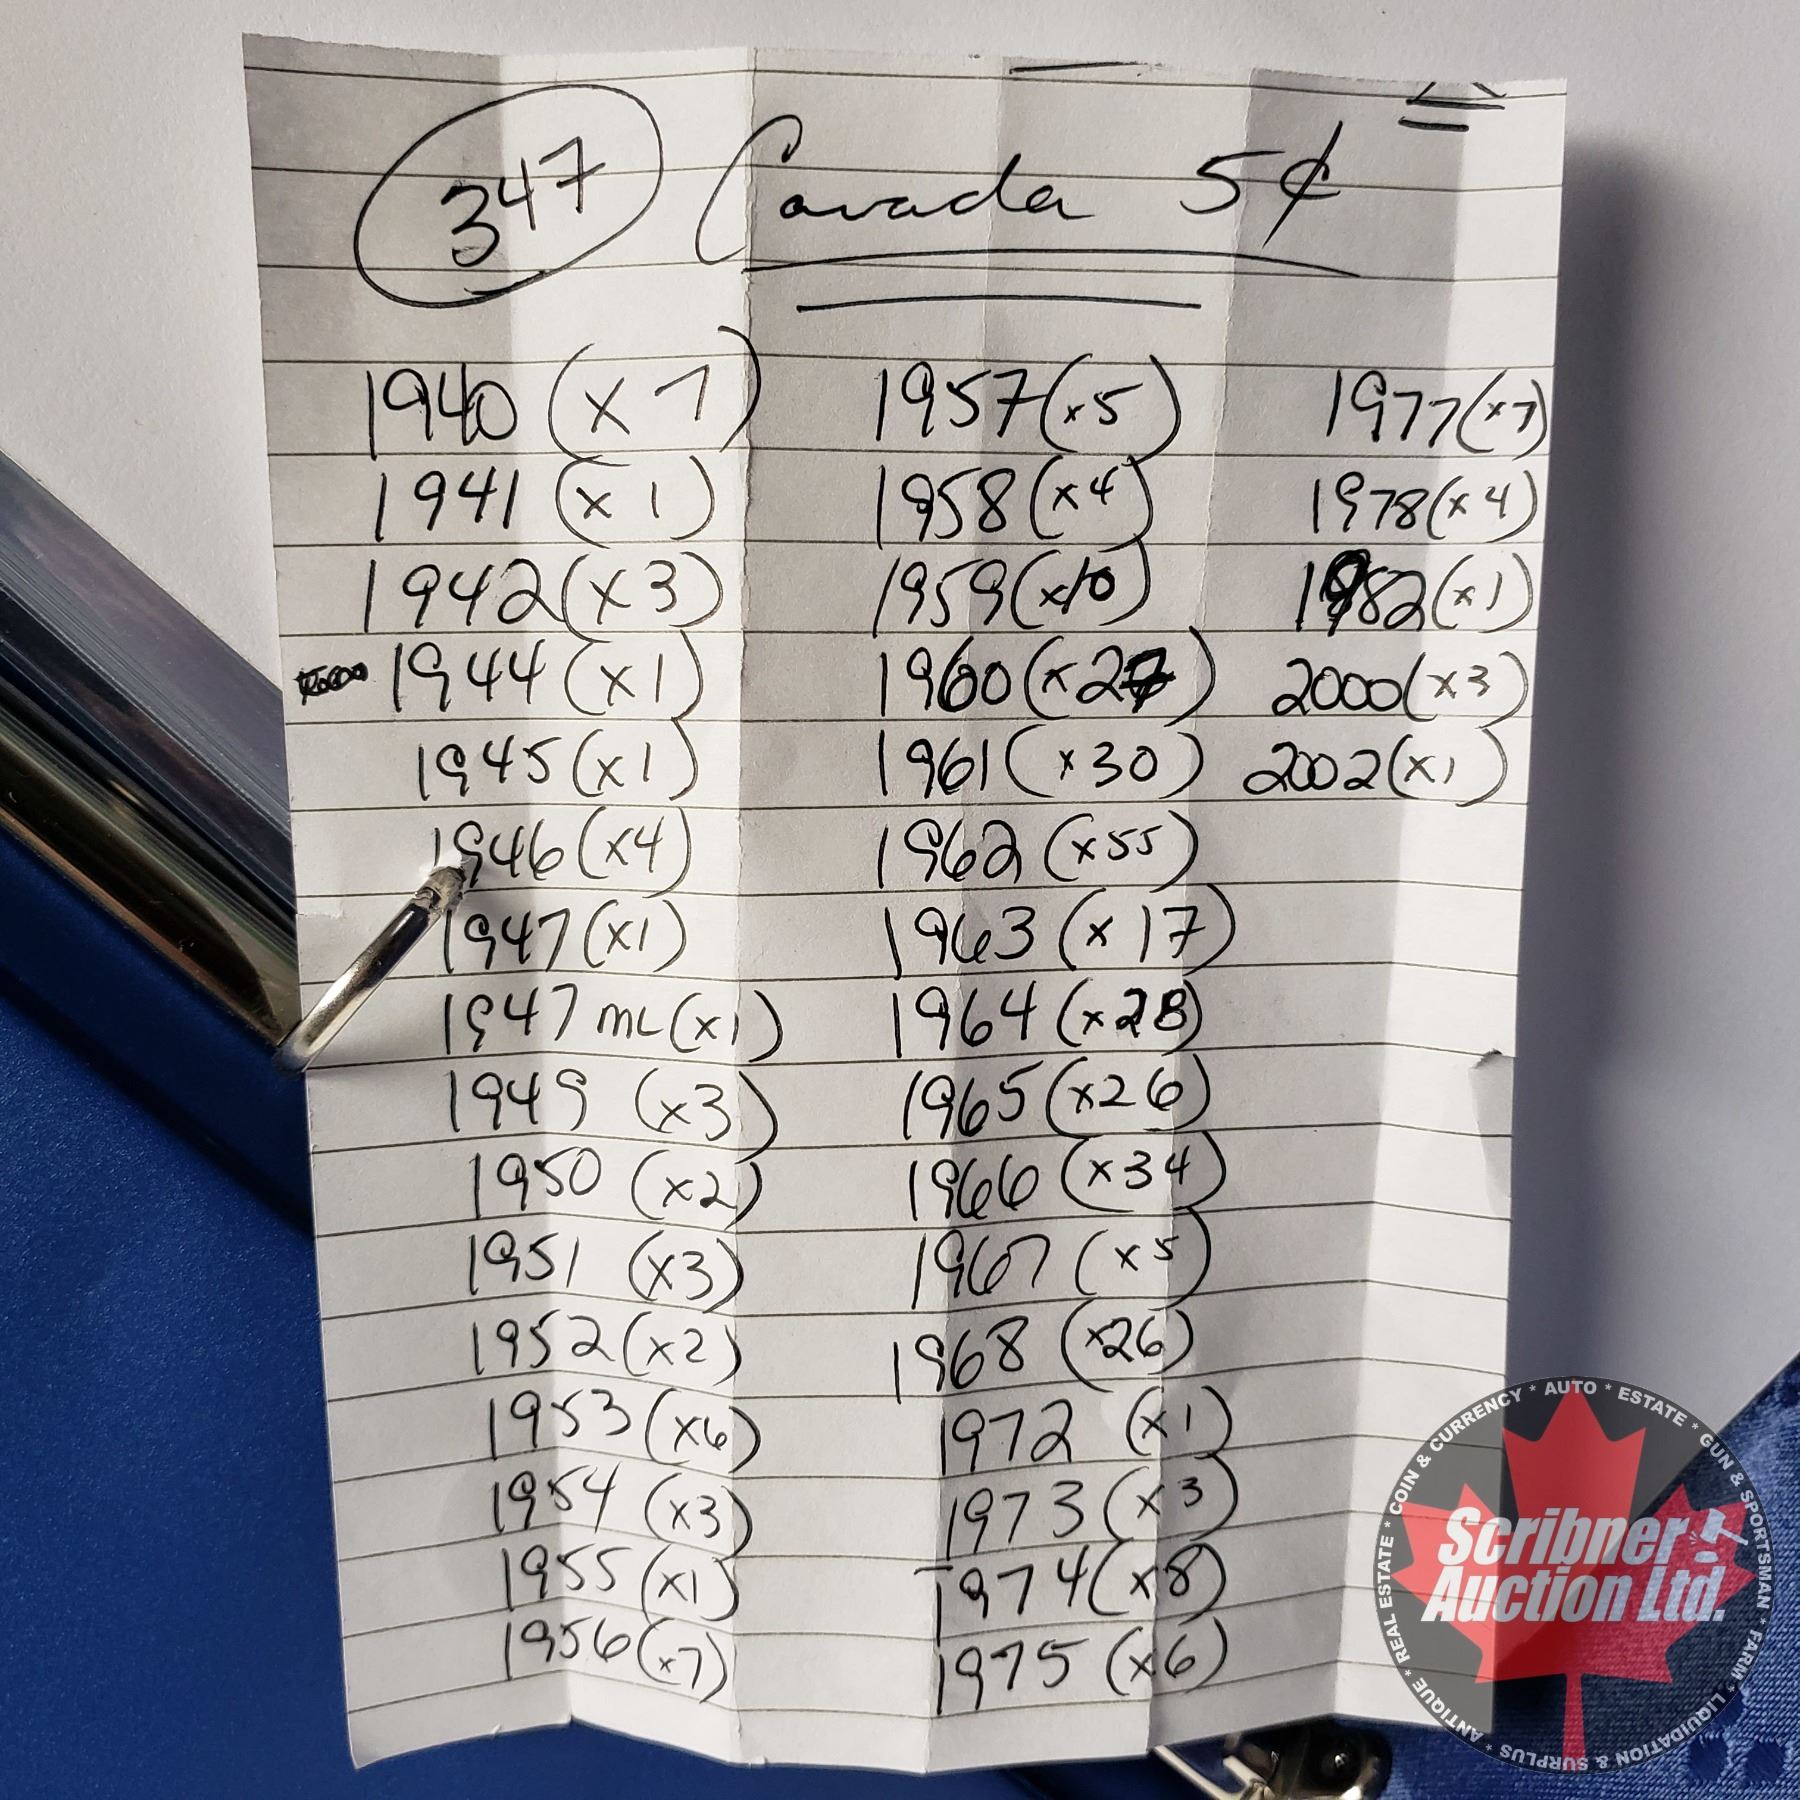 347 Canada 5¢
1940 (x7)
1941 (x1)
1942 (x3)
1944 (x1)
1945 (x1)
1946 (x4)
1947 (x1)
1947 ML (x1)
1949 (x3)
1950 (x2)
1951 (x3)
1952 (x2)
1953 (x6)
1954 (x3)
1955 (x1)
1956 (x7)
1957 (x5)
1958 (x4)
1959 (x10)
1960 (x27)
1961 (x30)
1962 (x55)
1963 (x17)
1964 (x28)
1965 (x26)
1966 (x34)
1967 (x5)
1968 (x26)
1972 (x1)
1973 (x3)
1974 (x8)
1975 (x6)
1977 (x7)
1978 (x4)
1982 (x1)
2000 (x3)
2002 (x1)
Scribner
Auction Ltd.
ANTIQUE * REAL ESTATE * COIN & CURRENCY * AUTO * ESTATE * GUN & SPORTSMAN * FARM * LIQUIDATION & SURPLUS *